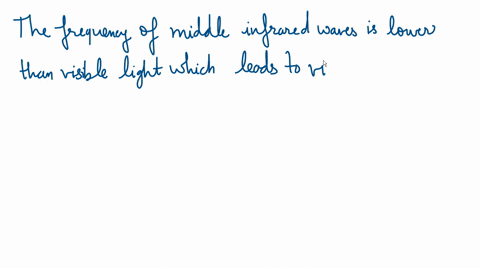 The frequency of middle infrared waves is lower
than visible light which leads to vi